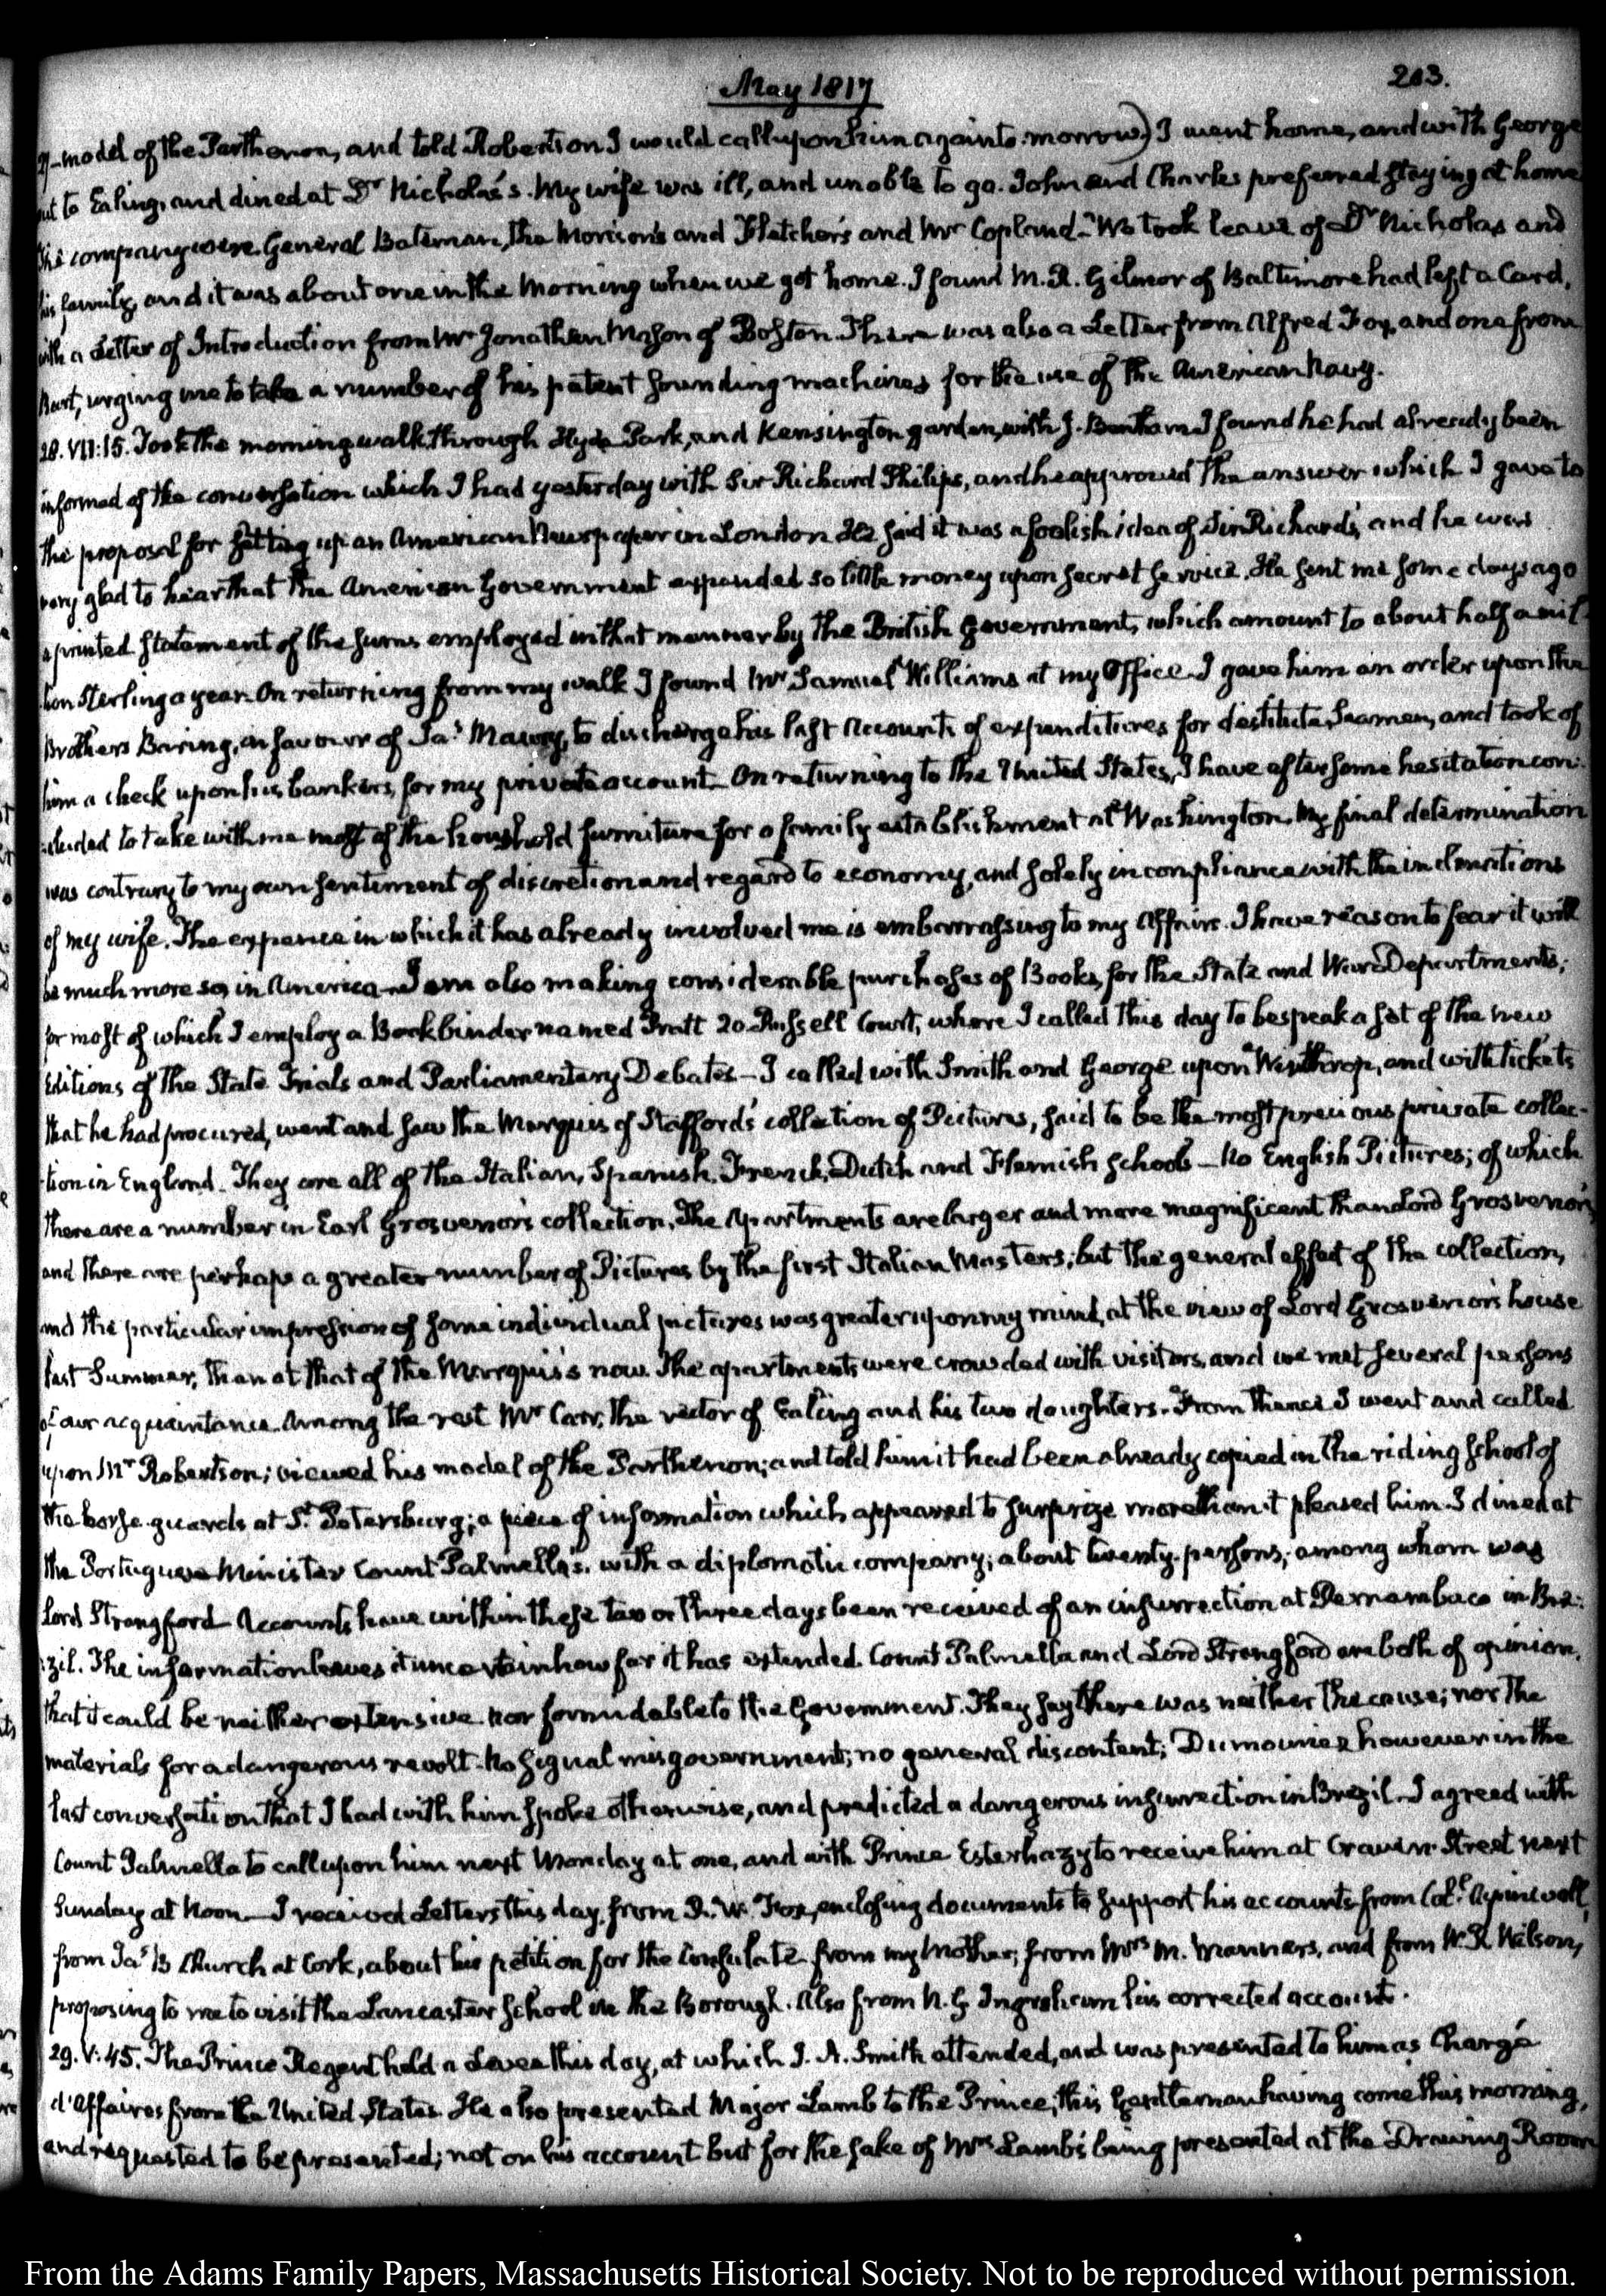 May 1817
203.
model of the Parthenon, and told Robertson I would call upon him again to-morrow) I went home, and with George
out to Ealing, and dined at Dr. Nicholas's. My wife was ill, and unable to go. John and Charles preferred staying at home
The company were General Bateman, the Morison's and Fletcher's and Mr Copland. We took leave of Dr Nicholas and
his family, and it was about one in the Morning when we got home. I found M. R. Gilmor of Baltimore had left a Card,
with a Letter of Introduction from Mr Jonathan Mason of Boston. There was also a Letter from Alfred Fox, and one from
Burt, urging me to take a number of his patent sounding machines for the use of the American Navy.
28. VII:15. Took the morning walk through Hyde Park, and Kensington garden, with J. Bentham I found he had already been
informed of the conversation which I had yesterday with Sir Richard Philips, and he approved the answer which I gave to
the proposal for setting up an American Newspaper in London He said it was a foolish idea of Sir Richard's, and he was
very glad to hear that the American Government expended so little money upon secret service. He sent me some days ago
a printed statement of the sums employed in that manner by the British Government, which amount to about half a mil-
lion Sterling a year. On returning from my walk I found Mr Samuel Williams at my Office. I gave him an order upon the
Brothers Baring, in favour of Jas Maury, to discharge his last Accounts of expenditures for destitute Seamen, and took of
him a check upon his bankers, for my private account. On returning to the United States, I have after some hesitation con-
cluded to take with me most of the household furniture for a family establishment at Washington. My final determination
was contrary to my own sentiment of discretion and regard to economy, and solely in compliance with the inclinations
of my wife. The expence in which it has already involved me is embarrassing to my Affairs. I have reason to fear it will
be much more so, in America. I am also making considerable purchases of Books, for the State and War Departments;
for most of which I employ a Bookbinder named Pratt 20 Russell Court, where I called this day to bespeak a set of the new
Editions of the State Trials and Parliamentary Debates — I called with Smith and George upon Winthrop, and with tickets
that he had procured, went and saw the Marquis of Stafford's collection of Pictures, said to be the most precious private collec-
tion in England. They are all of the Italian, Spanish, French, Dutch and Flemish Schools — No English Pictures; of which
there are a number in Earl Grosvenor's collection. The apartments are larger and more magnificent than Lord Grosvenor's
and there are perhaps a greater number of Pictures by the first Italian Masters; but the general effect of the collection,
and the particular impression of some individual pictures was greater upon my mind, at the view of Lord Grosvenor's house
last Summer, than at that of the Marquis's now. The apartments were crowded with visitors, and we met several persons
of our acquaintance. Among the rest Mr Carr, the rector of Ealing and his two daughters. From thence I went and called
upon Mr Robertson; viewed his model of the Parthenon; and told him it had been already copied in the riding school of
the horse-guards at St. Petersburg; a piece of information which appeared to surprize more than it pleased him. I dined at
the Portuguese Minister Count Palmella's. with a diplomatic company; about twenty persons; among whom was
Lord Strangford Accounts have within these two or three days been received of an insurrection at Pernambuco in Bra-
zil. The information leaves it uncertain how far it has extended. Count Palmella and Lord Strangford are both of opinion,
that it could be neither extensive nor formidable to the Government. They say there was neither the cause; nor the
materials for a dangerous revolt. No signal misgovernment; no general discontent; Dumouriez however in the
last conversation that I had with him spoke otherwise, and predicted a dangerous insurrection in Brazil. I agreed with
Count Palmella to call upon him next Monday at one, and with Prince Esterhazy to receive him at Craven-Street next
Sunday at Noon. I received Letters this day, from R. W. Fox, enclosing documents to support his accounts from Col. Aspinwall,
from Jas B Church at Cork, about his petition for the Consulate from my Mother; from Mrs M. Manners, and from W. R. Wilson,
proposing to me to visit the Lancaster School in the Borough. Also from N. G Ingraham his corrected account.
29. V:45. The Prince Regent held a Levee this day, at which J. A. Smith attended, and was presented to him as Chargé
d'Affaires from the United States. He also presented Major Lamb to the Prince, this Gentleman having come this morning,
and requested to be presented; not on his account but for the sake of Mrs Lamb's being presented at the Drawing Room
From the Adams Family Papers, Massachusetts Historical Society. Not to be reproduced without permission.